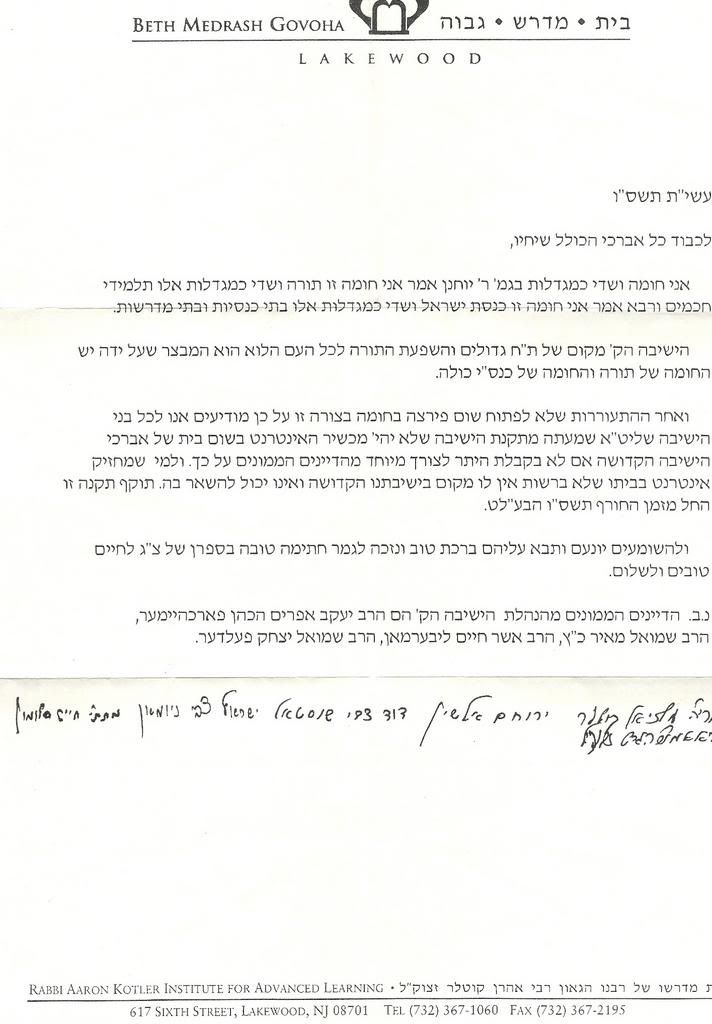 BETH MEDRASH GOVOHA בית • מדרש • גבוה
LAKEWOOD
עשי"ת תשס"ו
לכבוד כל אברכי הכולל שיחיו,
אני חומה ושדי כמגדלות בגמ' ר' יוחנן אמר אני חומה זו תורה ושדי כמגדלות אלו תלמידי
חכמים ורבא אמר אני חומה זו כנסת ישראל ושדי כמגדלות אלו בתי כנסיות ובתי מדרשות.
הישיבה הק' מקום של ת"ח גדולים והשפעת התורה לכל העם הלוא הוא המבצר שעל ידה יש
החומה של תורה והחומה של כנס"י כולה.
ואחר ההתעוררות שלא לפתוח שום פירצה בחומה בצורה זו על כן מודיעים אנו לכל בני
הישיבה שליט"א שמעתה מתקנת הישיבה שלא יהי' מכשיר האינטרנט בשום בית של אברכי
הישיבה הקדושה אם לא בקבלת היתר לצורך מיוחד מהדיינים הממונים על כך. ולמי שמחזיק
אינטרנט בביתו שלא ברשות אין לו מקום בישיבתנו הקדושה ואינו יכול להשאר בה. תוקף תקנה זו
החל מזמן החורף תשס"ו הבע"לט.
ולהשומעים יונעם ותבא עליהם ברכת טוב ונזכה לגמר חתימה טובה בספרן של צ"ג לחיים
טובים ולשלום.
נ.ב. הדיינים הממונים מהנהלת הישיבה הק' הם הרב יעקב אפרים הכהן פארכהיימער,
הרב שמואל מאיר כ"ץ, הרב אשר חיים ליבערמאן, הרב שמואל יצחק פעלדער.
מלכיאל קוטלר ירוחם אולשין דוד צבי שוסטאל ישראל צבי ניומאן מתתי' חיים סלומון
RABBI AARON KOTLER INSTITUTE FOR ADVANCED LEARNING • מדרשו של רבנו הגאון רבי אהרן קוטלר זצוק"ל
617 SIXTH STREET, LAKEWOOD, NJ 08701 TEL (732) 367-1060 FAX (732) 367-2195